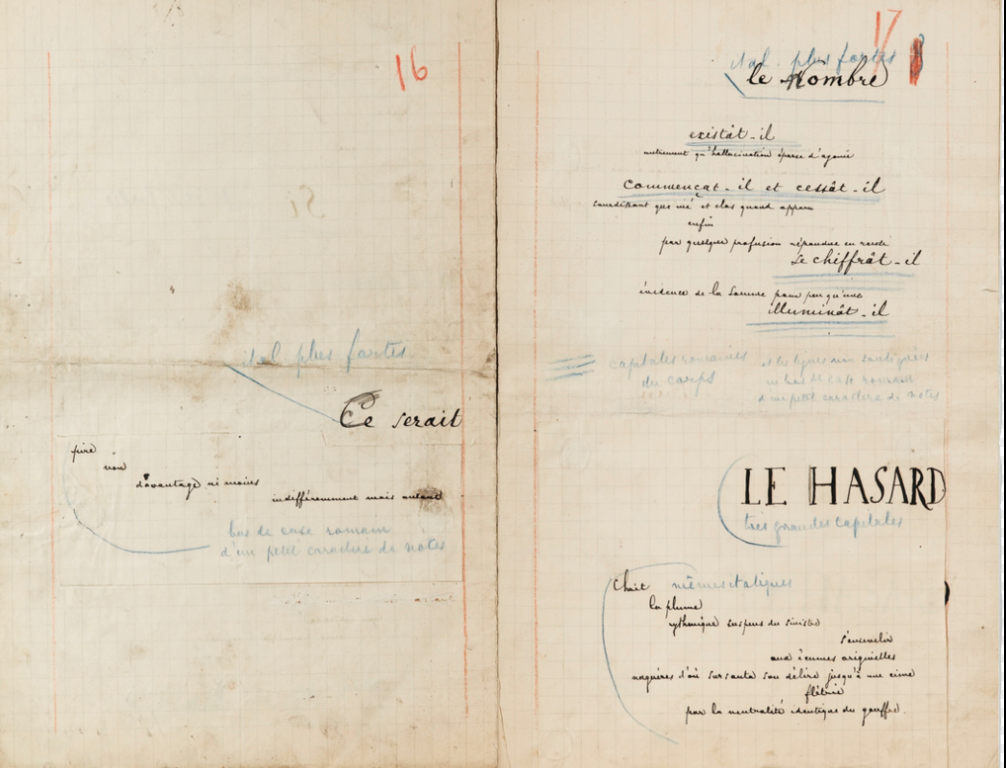 16
ital. plus fortes
Ce serait
pire
non
davantage ni moins
indifféremment mais autant
bas de case romain
d'un petit caractère de notes
17
ital. plus fortes
le Nombre
existât-il
autrement qu'hallucination éparse d'agonie
commençât-il et cessât-il
sourdissant que nié et clos quand apparu
enfin
par quelque profusion répandue en rareté
se chiffrât-il
évidence de la somme pour peu qu'une
illuminât-il
capitales romaines
du corps
et les lignes non soulignées
en bas de case romain
d'un petit caractère de notes
LE HASARD
très grandes capitales
Choit
mêmes italiques
la plume
rythmique suspens du sinistre
s'ensevelir
aux écumes originelles
naguères d'où sursauta son délire jusqu'à une cime
flétrie
par la neutralité identique du gouffre.